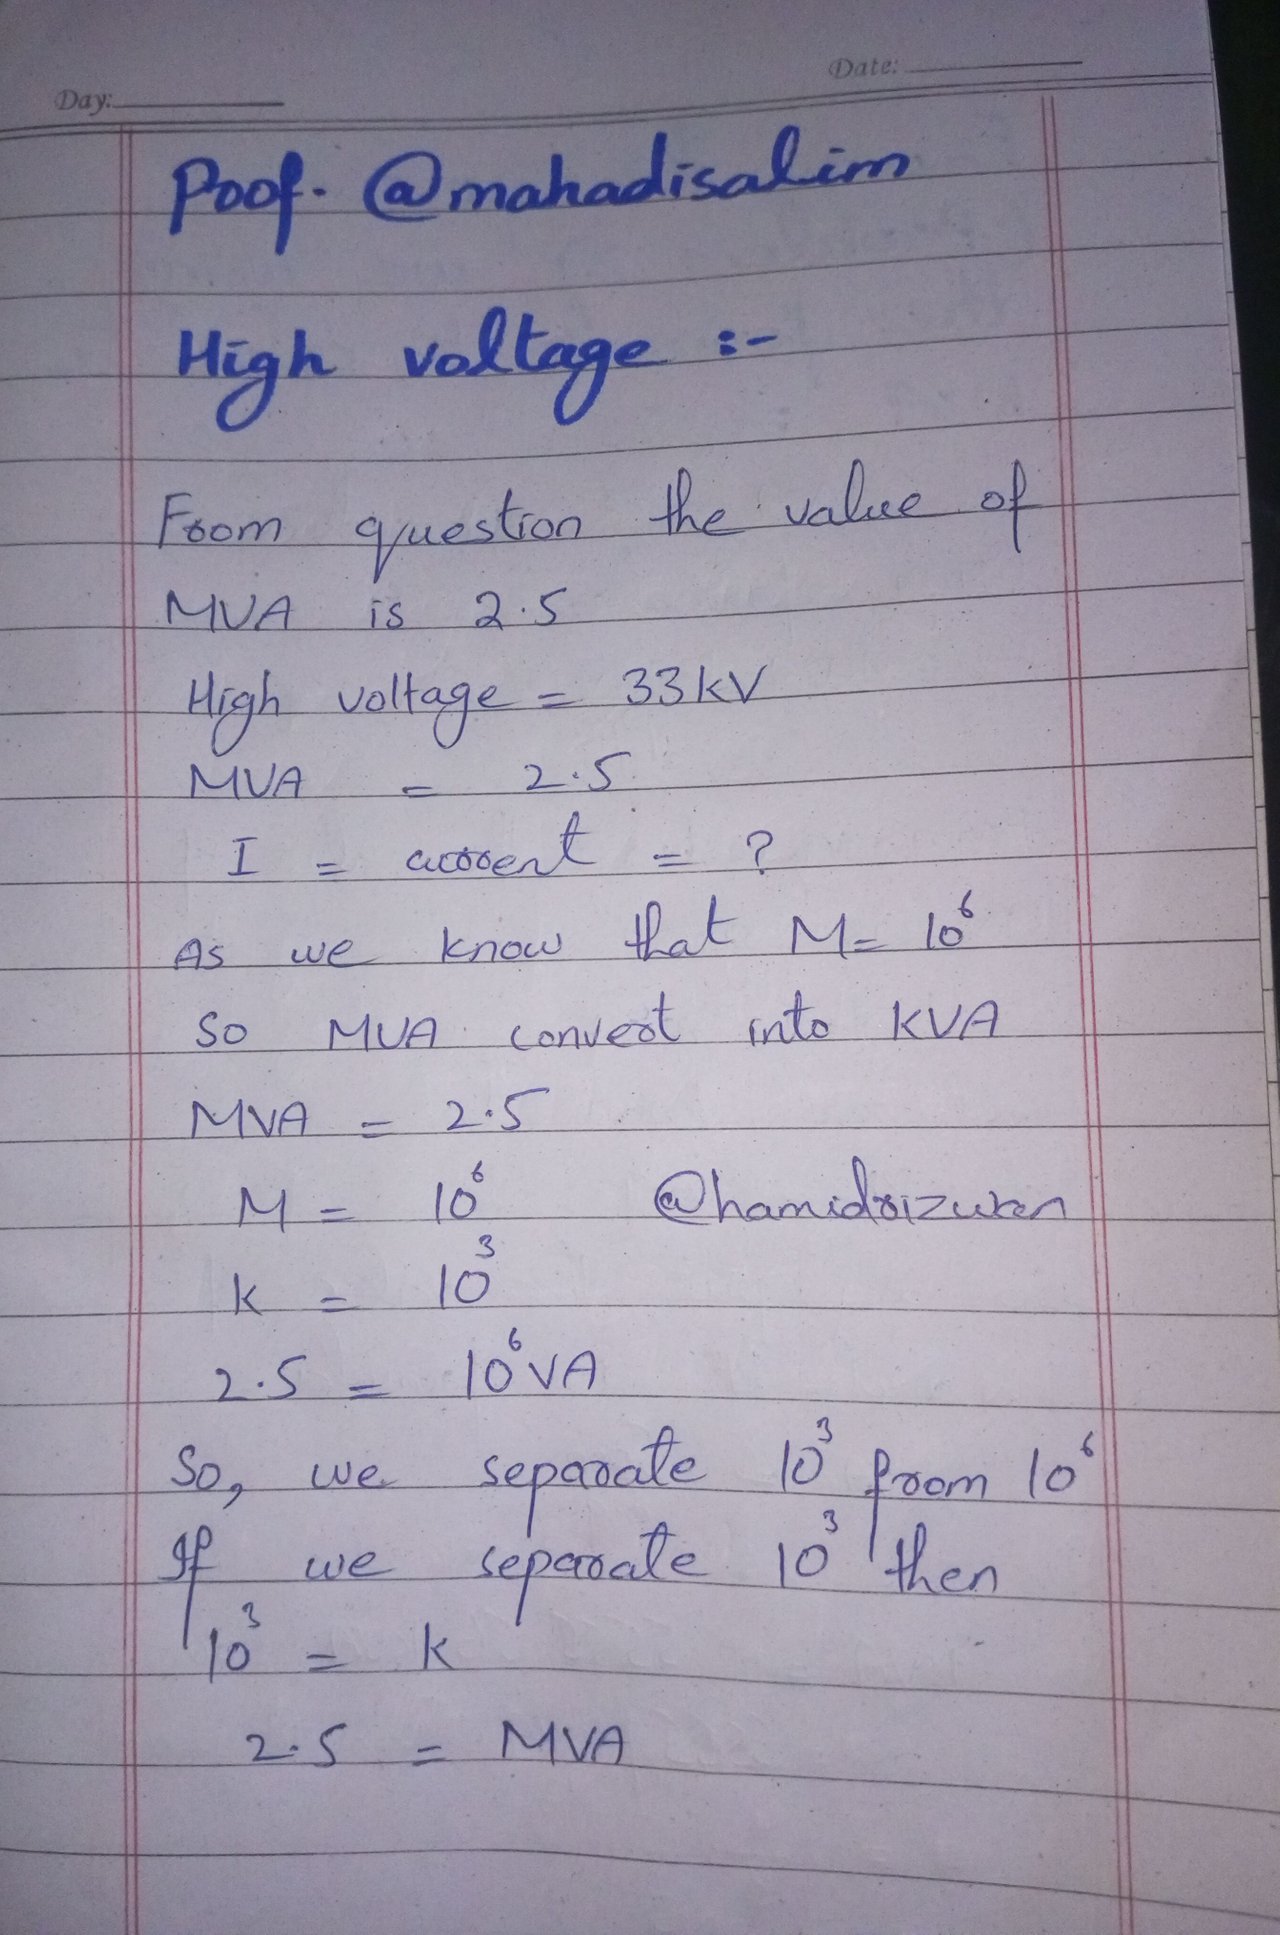 Day:
Date:
Prof. @mahadisalim
High voltage :-
From question the value of
MVA is 2.5
High voltage = 33kV
MVA = 2.5
I = current = ?
As we know that M= 10⁶
So MVA convert into KVA
MVA = 2.5
M = 10⁶ @hamidrizwan
k = 10³
2.5 = 10⁶VA
So, we separate 10³ from 10⁶
If we separate 10³ then
10³ = k
2.5 = MVA